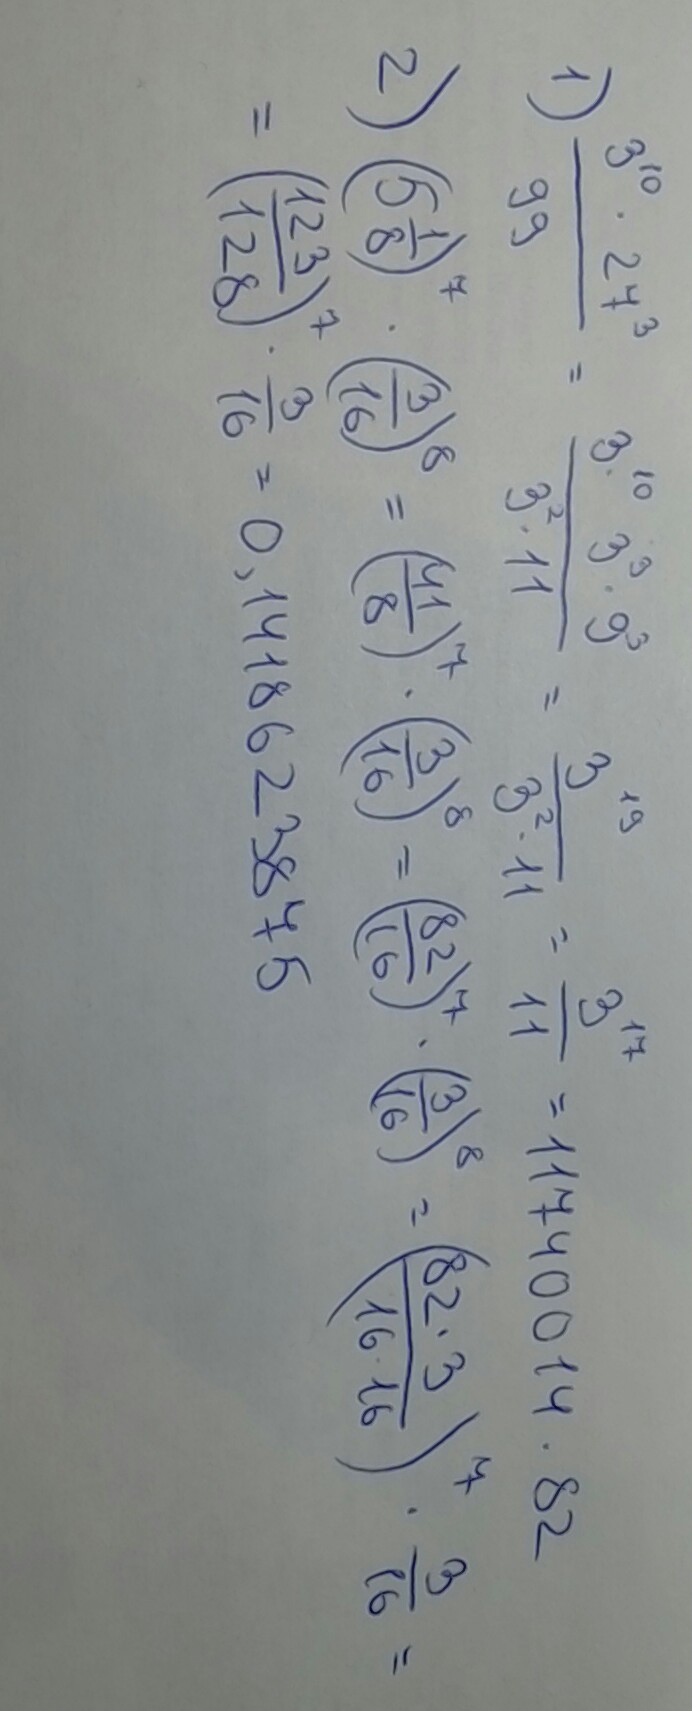 1) 3^10 · 27^3 / 99 = 3·^10 3^3 · 9^3 / 3^2 · 11 = 3^19 / 3^2 · 11 = 3^17 / 11 = 11740014.82
2) (5 1/8)^7 · (3/16)^8 = (41/8)^7 · (3/16)^8 = (82/16)^7 · (3/16)^8 = (82·3 / 16·16)^7 · 3/16 =
= (123/128)^7 · 3/16 = 0,1418623875